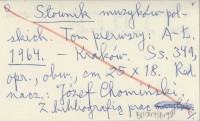 Słownik muzyków pol-
skich. Tom pierwszy: A-Ł.
1964. - Kraków. Ss. 349,
opr., obw., cm 25 x 18. Red.
nacz.: Józef Chomiński.
Z bibliografią prac